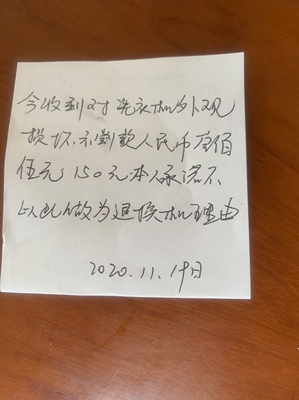 今收到对洗衣机外观
损坏,补对款人民币壹佰
伍元,150元本人承诺不
以此做为退换机理由
2020.11.19日